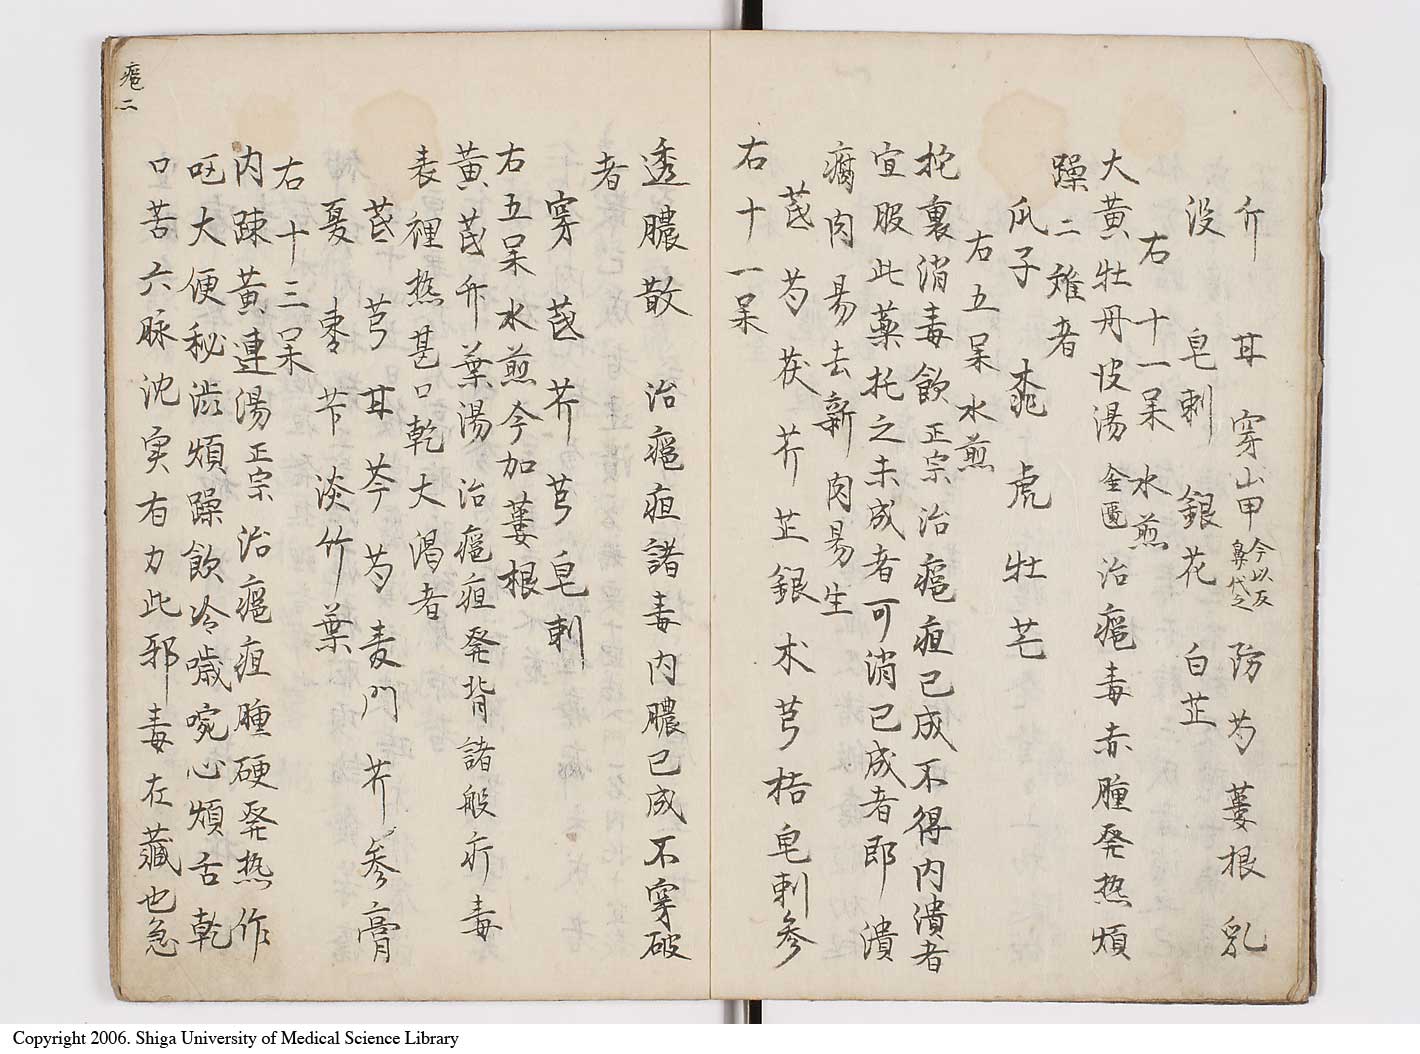 介 耳 穿山甲 今以反鼻代之 防 芍 蔞根 乳
没 皂刺 銀花 白芷
右十一呆 水煎
大黄牡丹皮湯 金匱 治瘟毒赤腫発熱煩
躁二难者
瓜子 桃 虎 牡 芒
右五呆水煎
托裏消毒飲 正宗 治瘟疽已成不得内潰者
宜服此薬托之未成者可消已成者即潰
腐肉易去新肉易生
芪 芍 茯 芥 芷 銀 术 芎 桔 皂刺 参
右十一呆
透膿散 治瘟疽諸毒内膿已成不穿破
者
穿 芪 芥 芎 皂刺
右五呆水煎今加蔞根
黄芪竹葉湯 治瘟疽発背諸般疔毒
表裡熱甚口乾大渇者
芪 芎 耳 芩 芍 麦門 芥 参 膏
夏 棗 芐 淡竹葉
右十三呆
内踈黄連湯 正宗 治瘟疽腫硬発熱作
呕大便秘渋煩躁飲冷噦啘心煩舌乾
口苦六脉沈实有力此邪毒在蔵也急
瘟二
Copyright 2006. Shiga University of Medical Science Library